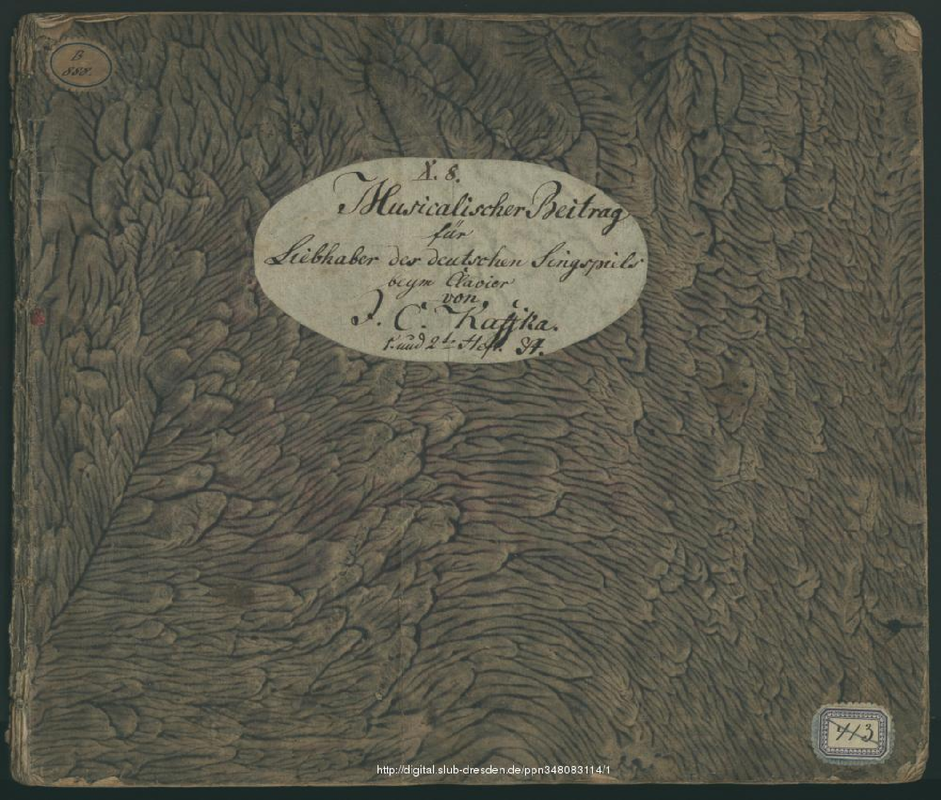 B
888.
X. 8.
Musicalischer Beitrag
für
Liebhaber des deutschen Singspiels
beym Clavier
von
J. C. Kaffka.
1. und 2te Heft.
443
http://digital.slub-dresden.de/ppn348083114/1